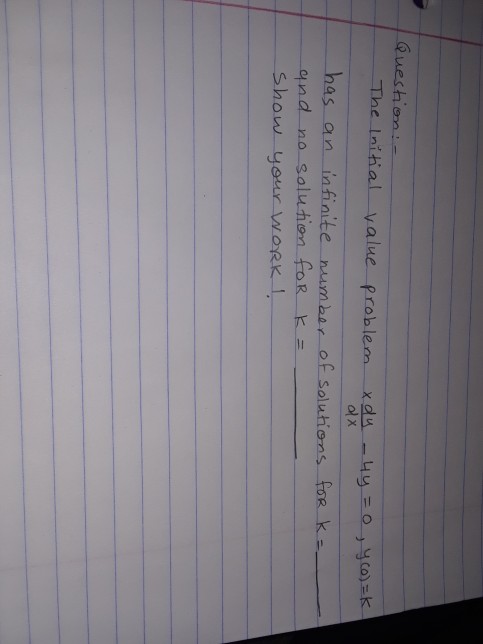 Question:-
The Initial value problem x dy/dx - 4y = 0, y(0)=K
has an infinite number of solutions for K = ____
and no solution for K = ____
Show your work!